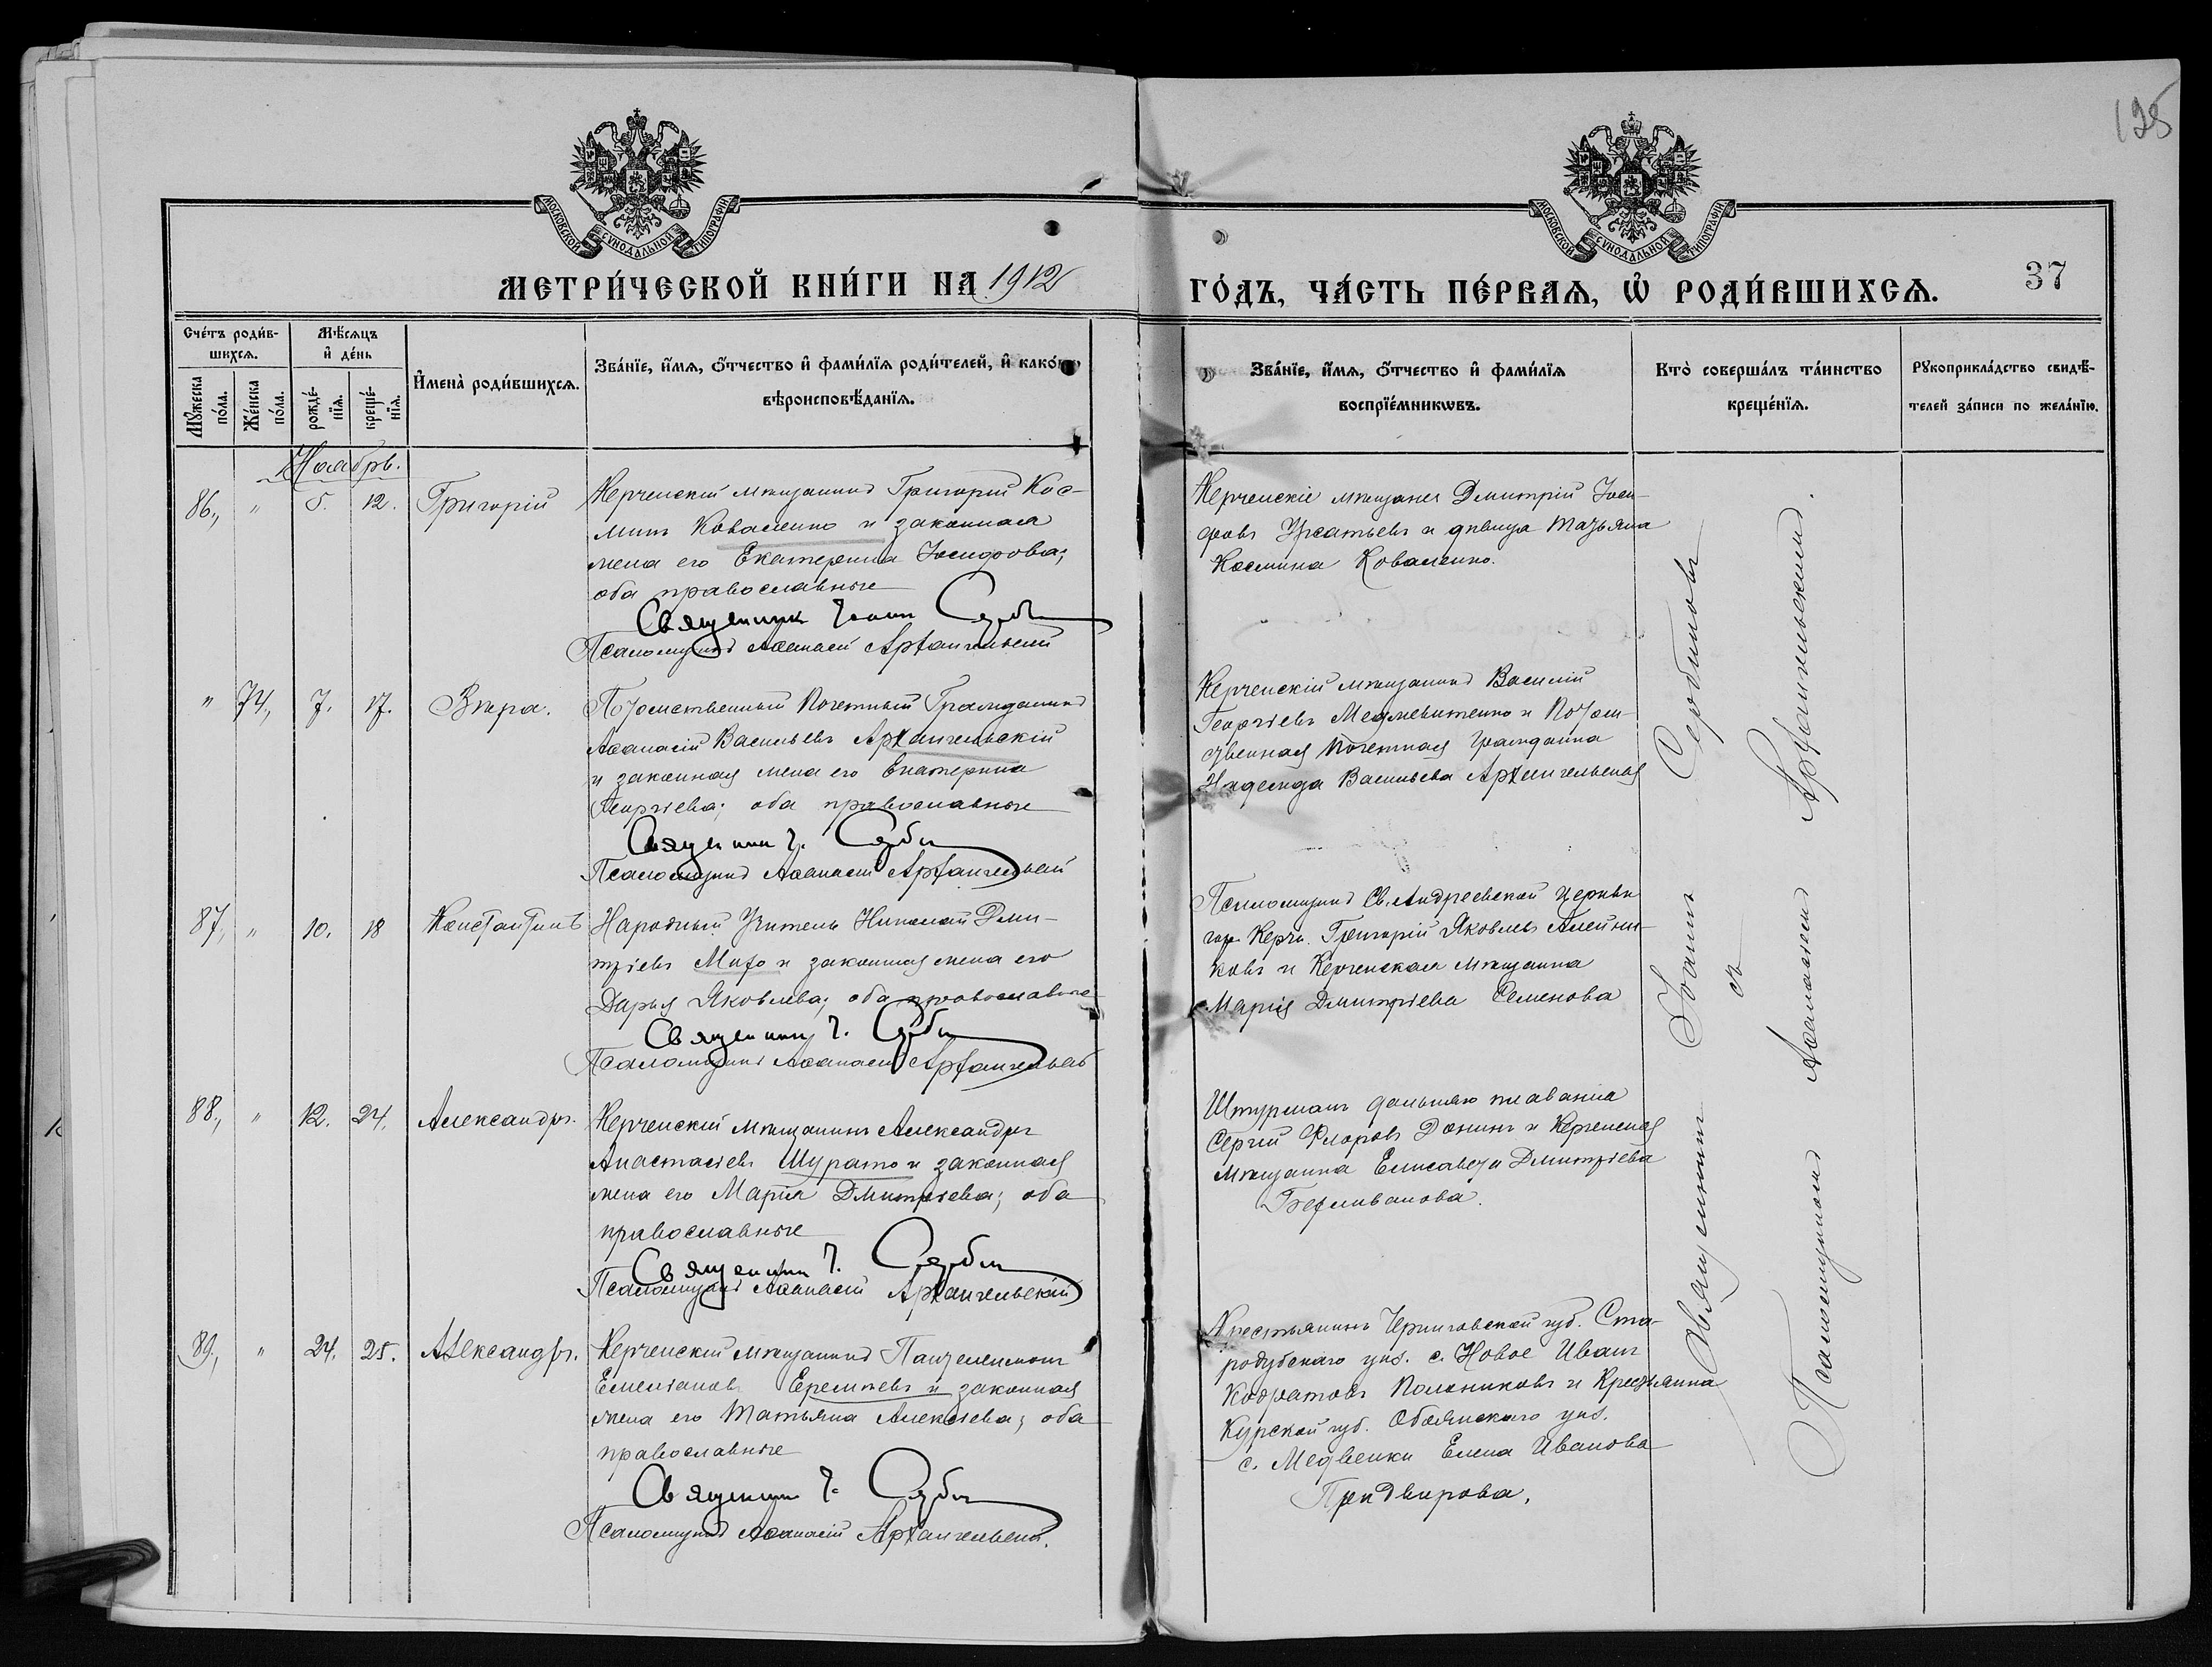 125
МОСКОВСКОЙ СѴНОДАЛЬНОЙ ТИПОГРАФІИ
МОСКОВСКОЙ СѴНОДАЛЬНОЙ ТИПОГРАФІИ
МЕТРИ́ЧЕСКОЙ КНИ́ГИ НА 1912
ГО́ДЪ, ЧА́СТЬ ПЕ́РВАѦ, Ѡ҆ РОДИ́ВШИХСѦ.
37
Сче́тъ роди́в-
шихсѧ.
Мѣ́сѧцъ
и҆ де́нь
Мꙋ́жеска
по́ла.
Же́нска
по́ла.
рожде́-
нїѧ.
креще́-
нїѧ.
И҆мена̀ роди́вшихсѧ.
Зва́нїе, и҆́мѧ, ѻ҆́тчество и҆ фами́лїѧ роди́телей, и҆ како́гѡ
вѣроисповѣ́данїѧ.
Зва́нїе, и҆́мѧ, ѻ҆́тчество и҆ фами́лїѧ
воспрїе́мникѡвъ.
Кто̀ соверша́лъ та́инство
креще́нїѧ.
Рꙋкоприкла́дство свидѣ́-
телей за́писи по жела́нїю.
Ноябрь.
86., " 5. 12. Григорій
Керченскій мѣщанинъ Григорій Кос-
минъ Коваленко и законная
жена его Екатерина Іосифова;
оба православные
Священник Іоанн Серби
Псаломщикъ Аѳанасій Архангельскій
Керченскіе мѣщане Дмитрій Іоси-
фовъ и дѣвица Татьяна
Космина Коваленко.
" 74., 7. 17. Вѣра.
Потомственный Почетный Гражданинъ
Аѳанасій Васильевъ Архангельскій
и законная жена его Екатерина
Георгіева; оба православные
Священник І. Серби
Псаломщикъ Аѳанасій Архангельскій
Керченскій мѣщанинъ Василій
Георгіевъ и Потом-
ственная почетная гражданка
Надежда Васильева Архангельская
87., " 10. 18 Константинъ
Народный Учитель Николай Дми-
тріевъ и законная жена его
Дарья Яковлева; оба православные
Священник І. Серби
Псаломщикъ Аѳанасій Архангельскій
Псаломщикъ Св. Андреевской церкви
гор. Керчи Григорій Яковлевъ Алейни-
ковъ и Керченская мѣщанка
Марія Дмитріева Семенова
88., " 12. 24. Александръ.
Керченскій мѣщанинъ Александръ
Анастасіевъ Мурато и законная
жена его Марія Дмитріева; оба
православные
Священник І. Серби
Псаломщикъ Аѳанасій Архангельскій
Штурманъ дальняго плаванія
Сергій Флоровъ Донинъ и Керченская
мѣщанка Елисавета Дмитріева
89., " 24. 25. Александръ.
Керченскій мѣщанинъ Пантелеимонъ
Емеліановъ Еремѣевъ и законная
жена его Татьяна Алексіева; оба
православные
Священник І. Серби
Псаломщикъ Аѳанасій Архангельскій.
Крестьянинъ Черниговской губ. Ста-
родубскаго уѣз. с. Новое Иванъ
Кодратовъ Полониковъ и Крестьянка
Курской губ. Обоянскаго уѣз.
с. Медвенки Елена Иванова
Придвирова.
Священникъ Іоаннъ Сербиновъ
съ
Псаломщикомъ Аѳанасіемъ Архангельскимъ.